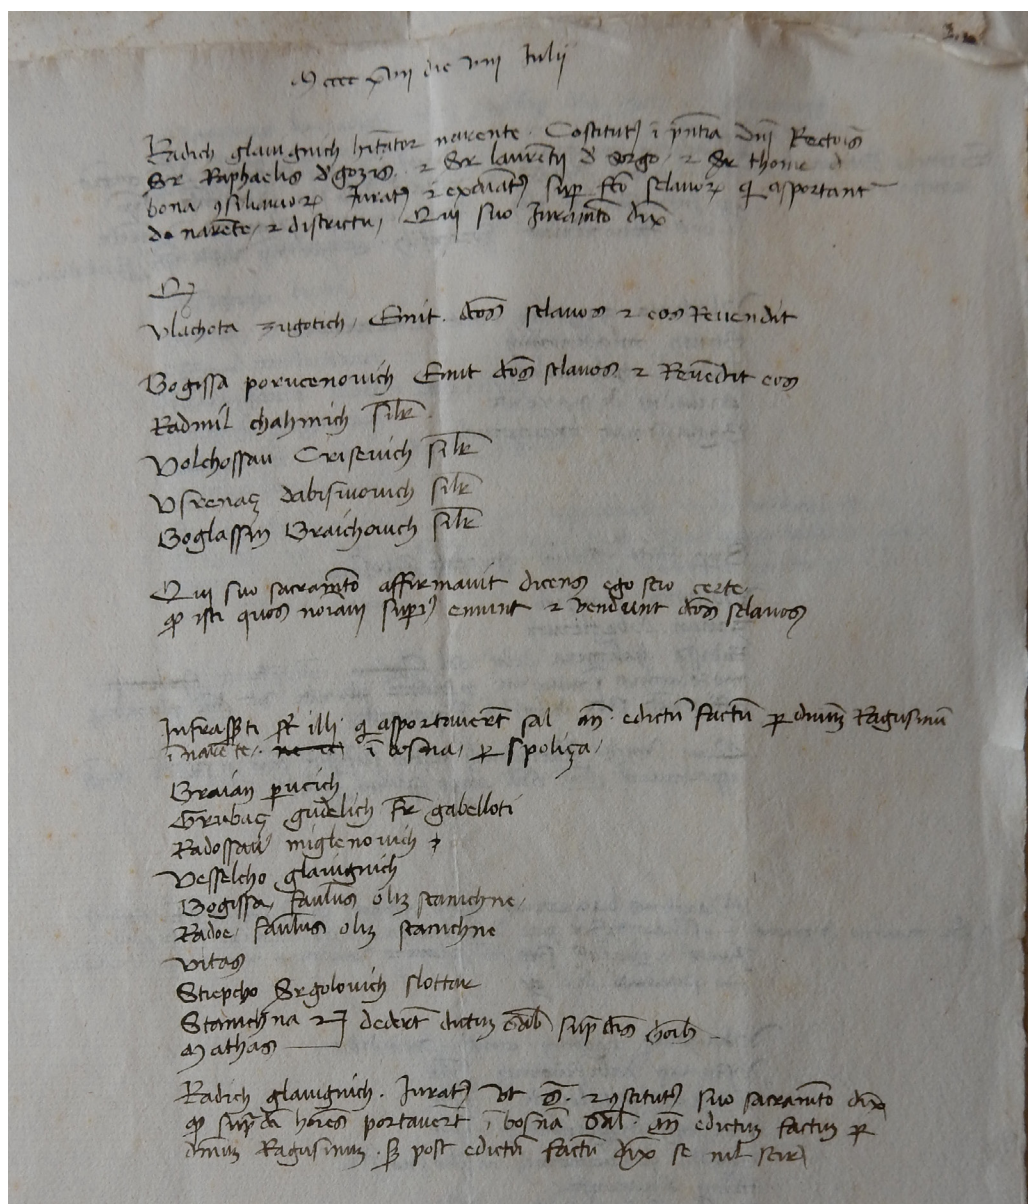 M cccc xviii die viiii Julii
Radich glauignich hitator narente. Costitutus i pntia dnj Rectoris
Ser Raphaelis d'gozis, et Ser laurentii d' sorgo, et Ser thome d
bona gsiliarior Juratus i exaiatus sup fco sclavor qi asportant
de narete, et districtu, Qui suo Juramto dix
Vlachota zugotich, Emit dcos sclauos et eos Reuendit
Bogissa porucenouich Emit dcos sclauos et Reuedit eos
Radmil chahmich silr
Volchossau Criseuich silr
Vsrenaç dabisiuouich silr
Boglassin Braichouich silr
Qui suo sacramto affirmauit dicens ego scio certe
qp isti quos noiaui supi emunt et vendunt dcos sclauos
Infrascpti st illi qi asportauert sal an edictu factu per dnium Ragusinu
i narete. i bosna, per spoliza
Braian perucich
Grubaç gudelich fr gabelloti
Radossau miglenouich
Vesselcho glauignich
Bogissa, faulus olim stanichne
Radoe, faulus olim stanichne
Vitas
Stiepcho Srgolouich slottar
Stanichna et dedert dictum sal supdcis hoib
Mathas
Radich glauignich. Juratus vt s. et gstitutus suo sacramto dix
qp supda hoies portauert i bosna sal. an edictum factum per
dnium Ragusinum. Sz post edictu factu dix se nil scir